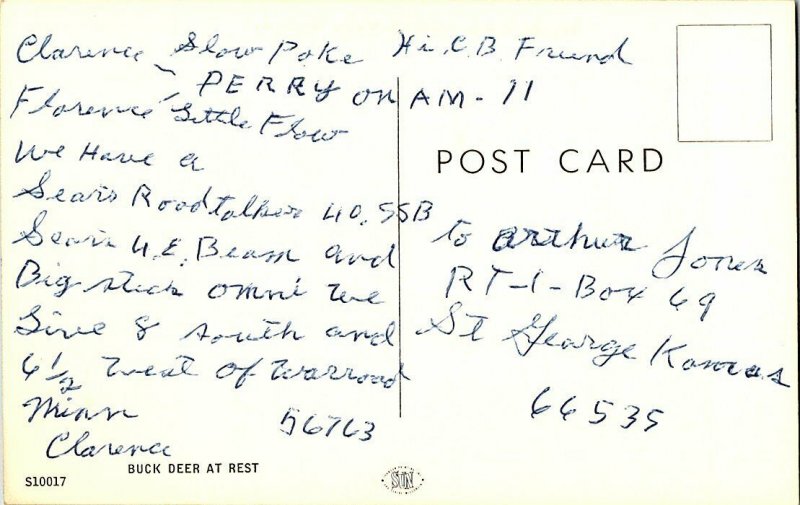 Clarence Slow Poke Hi. C.B. Friend
PERRY on AM - 11
Florence Little Flow
We Have a
Sears Roadtalker 40, SSB
Sears 4.E. Beam and
Big stick omni We
Live 8 south and
6 1/2 West of Warroad
Minn 56763
Clarence
POST CARD
to arthur Jones
RT-1-Box 69
St George Kansas
66535
BUCK DEER AT REST
S10017
SUN